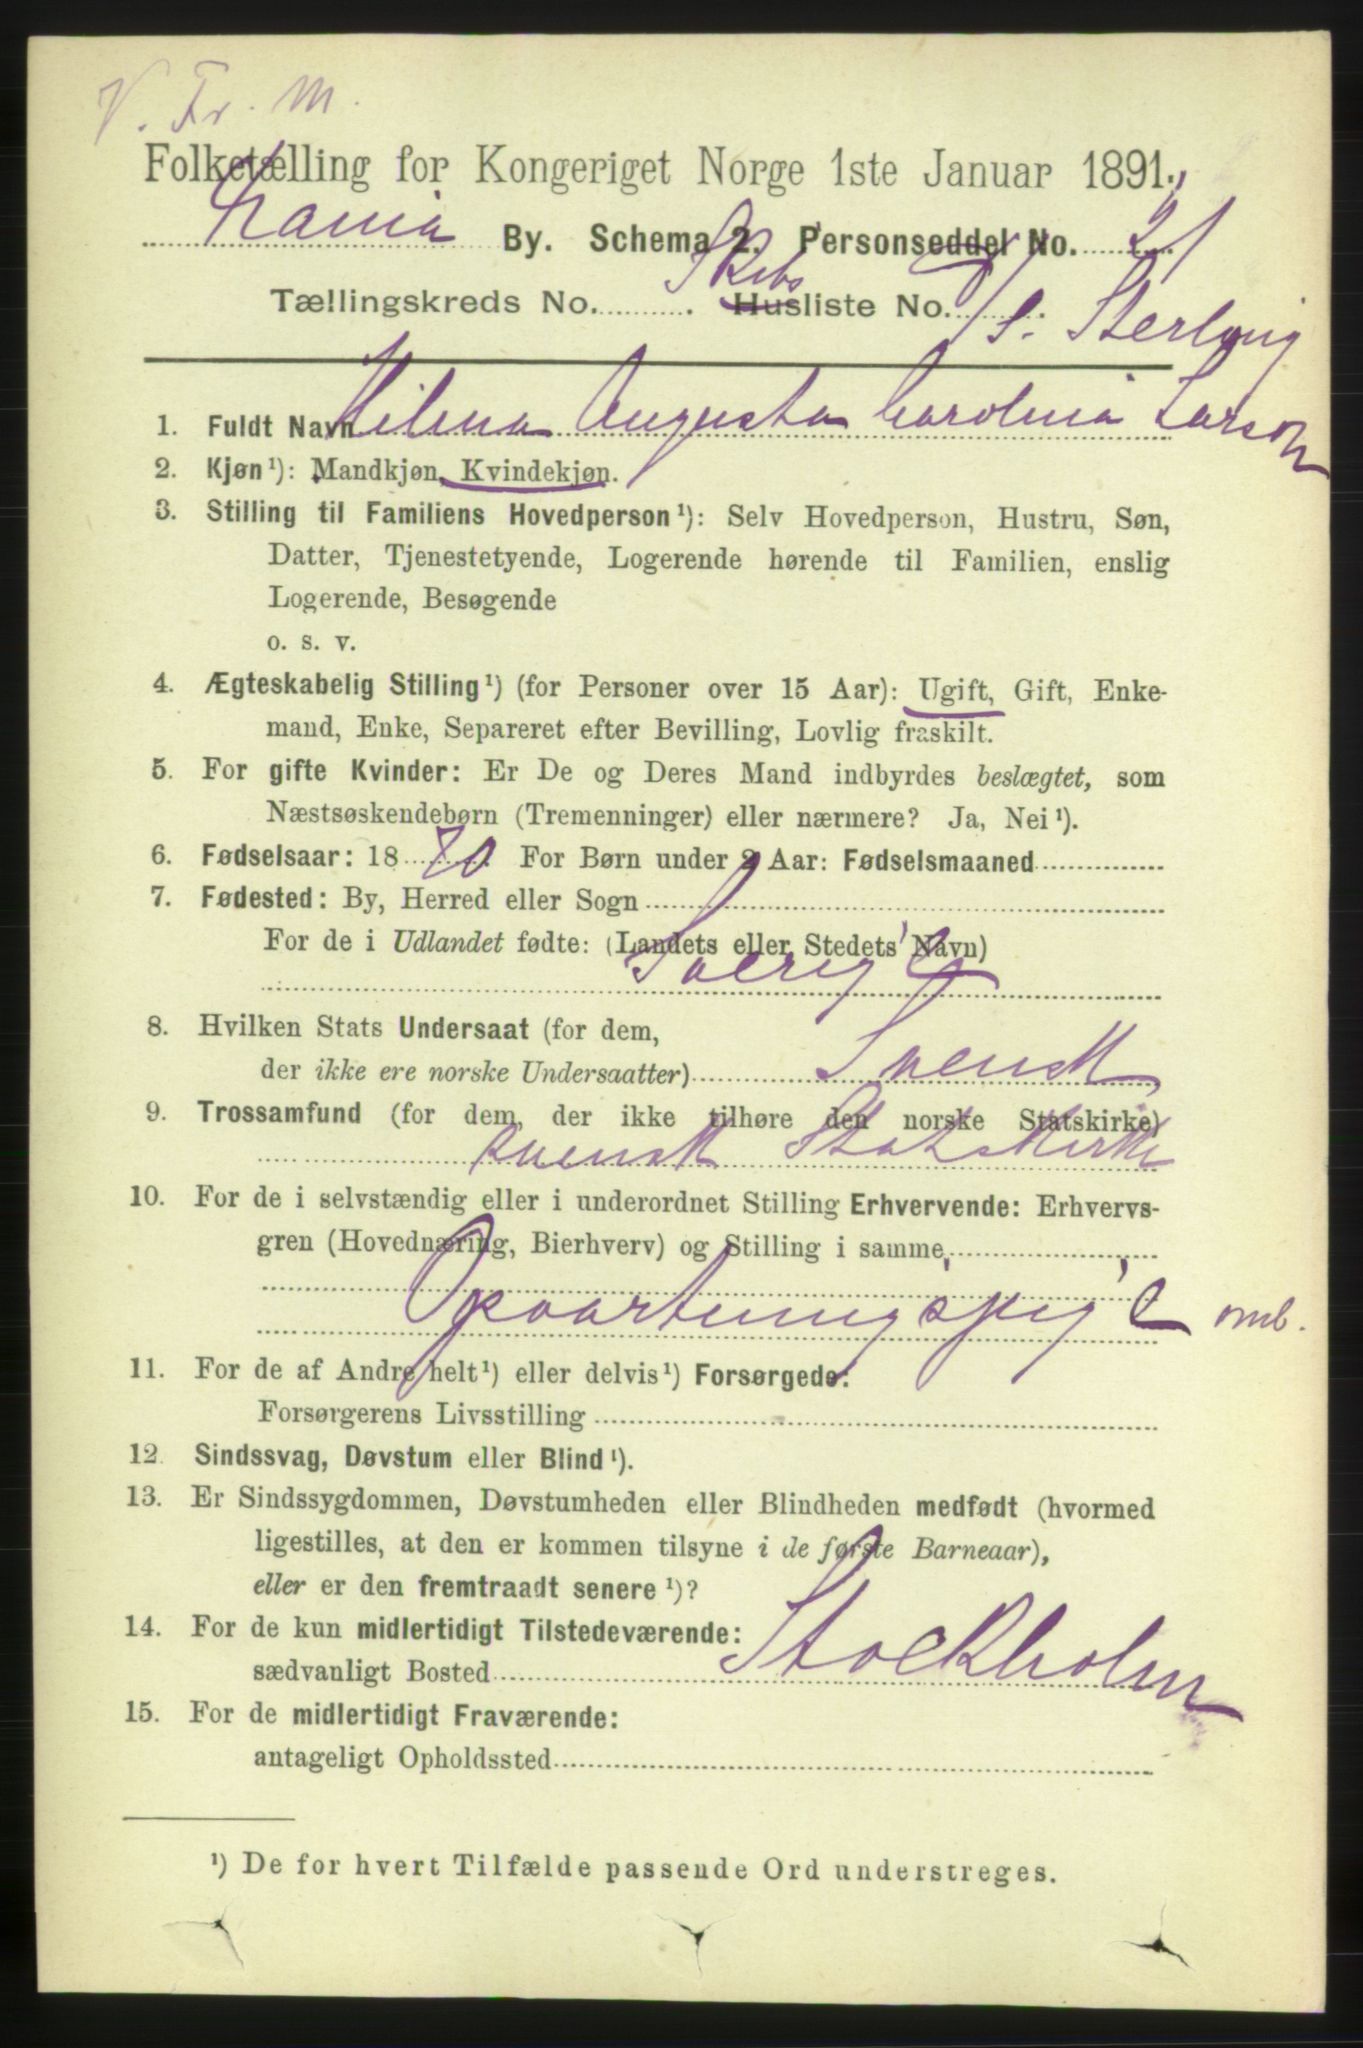 V. Fr. M.
Folketælling for Kongeriget Norge 1ste Januar 1891.
By. Schema 2. Personseddel No. 21
Tællingskreds No. . Skibs Husliste No.
D/S. Sterling
1. Fuldt Navn Hilma Augusta Carolina Larson
2. Kjøn¹): Mandkjøn, Kvindekjøn.
3. Stilling til Familiens Hovedperson¹): Selv Hovedperson, Hustru, Søn,
Datter, Tjenestetyende, Logerende hørende til Familien, enslig
Logerende, Besøgende
o. s. v.
4. Ægteskabelig Stilling¹) (for Personer over 15 Aar): Ugift, Gift, Enke-
mand, Enke, Separeret efter Bevilling, Lovlig fraskilt.
5. For gifte Kvinder: Er De og Deres Mand indbyrdes beslægtet, som
Næstsøskendebørn (Tremenninger) eller nærmere? Ja, Nei¹).
6. Fødselsaar: 1870 For Børn under 2 Aar: Fødselsmaaned
7. Fødested: By, Herred eller Sogn
For de i Udlandet fødte: (Landets eller Stedets Navn)
Sverige
8. Hvilken Stats Undersaat (for dem,
der ikke ere norske Undersaatter) Svensk
9. Trossamfund (for dem, der ikke tilhøre den norske Statskirke)
svensk Statskirke
10. For de i selvstændig eller i underordnet Stilling Erhvervende: Erhvervs-
gren (Hovednæring, Bierhverv) og Stilling i samme
Opvartningspige omb.
11. For de af Andre helt¹) eller delvis¹) Forsørgede:
Forsørgerens Livsstilling
12. Sindssvag, Døvstum eller Blind¹).
13. Er Sindssygdommen, Døvstumheden eller Blindheden medfødt (hvormed
ligestilles, at den er kommen tilsyne i de første Barneaar),
eller er den fremtraadt senere¹)?
14. For de kun midlertidigt Tilstedeværende:
sædvanligt Bosted Stockholm
15. For de midlertidigt Fraværende:
antageligt Opholdssted
¹) De for hvert Tilfælde passende Ord understreges.